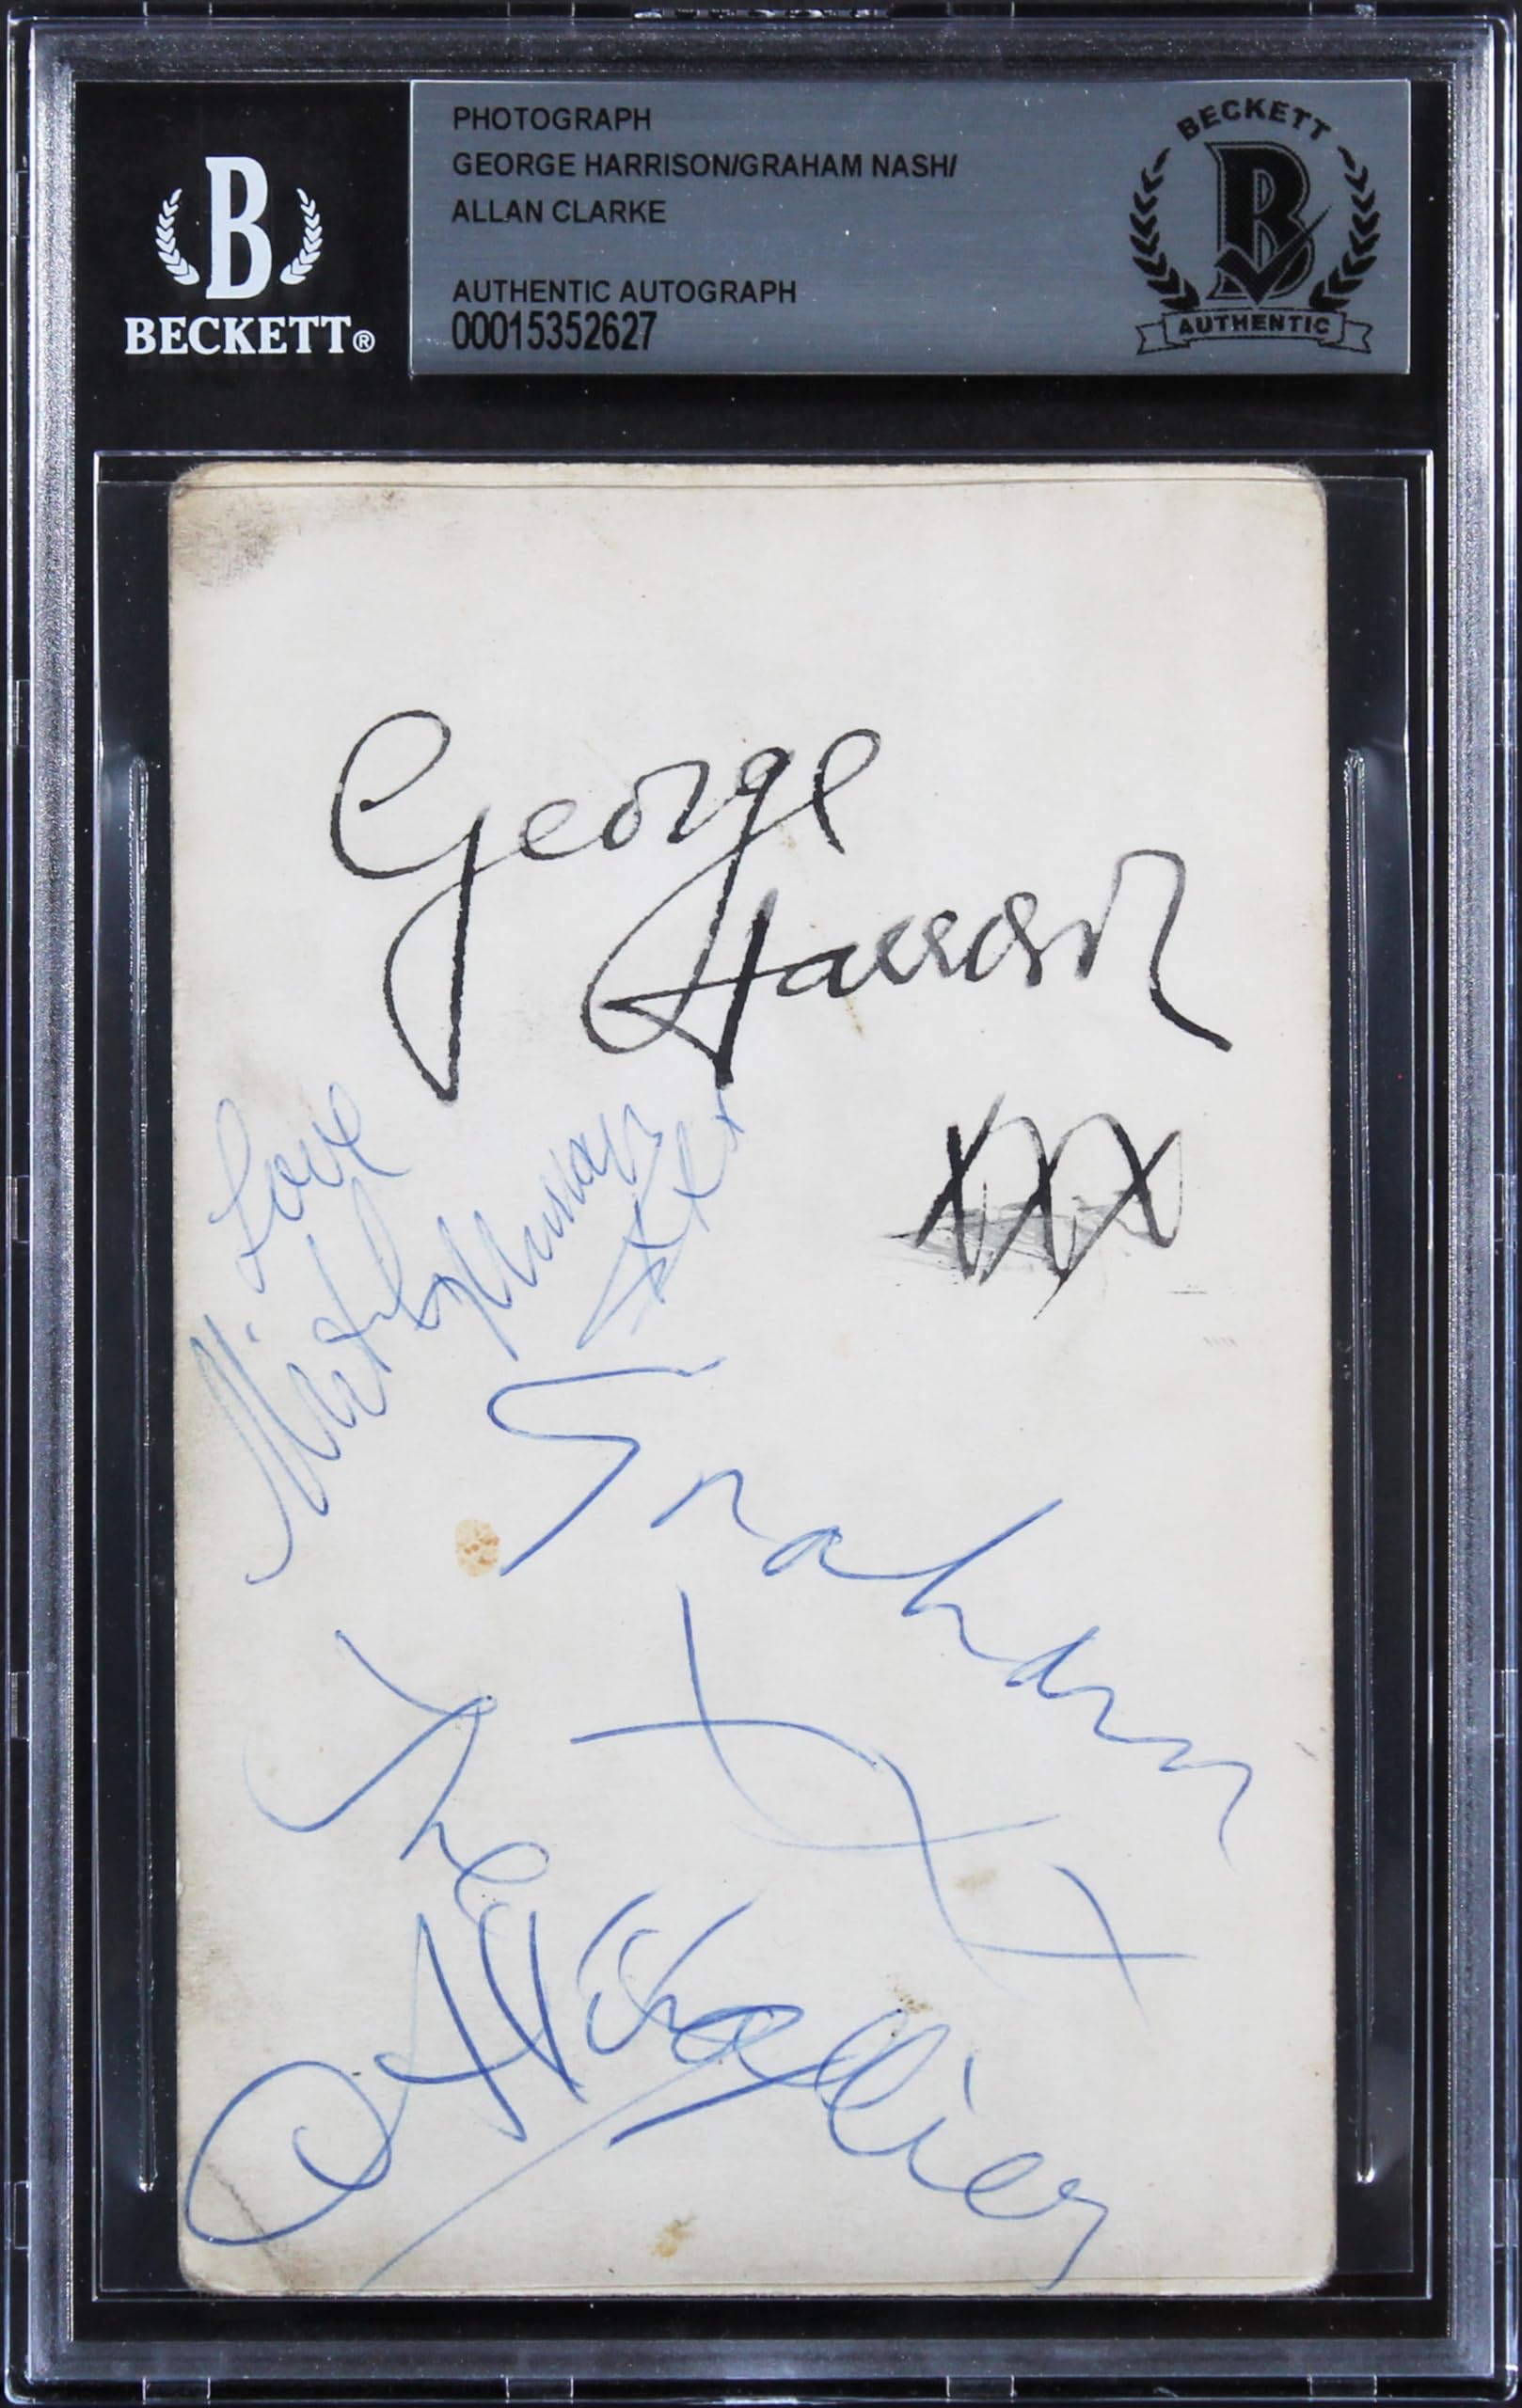 BECKETT®
PHOTOGRAPH
GEORGE HARRISON/GRAHAM NASH/
ALLAN CLARKE
AUTHENTIC AUTOGRAPH
00015352627
BECKETT
B
AUTHENTIC
George
Harrison
xxx
Love
Graham
xxx
The
Hollies